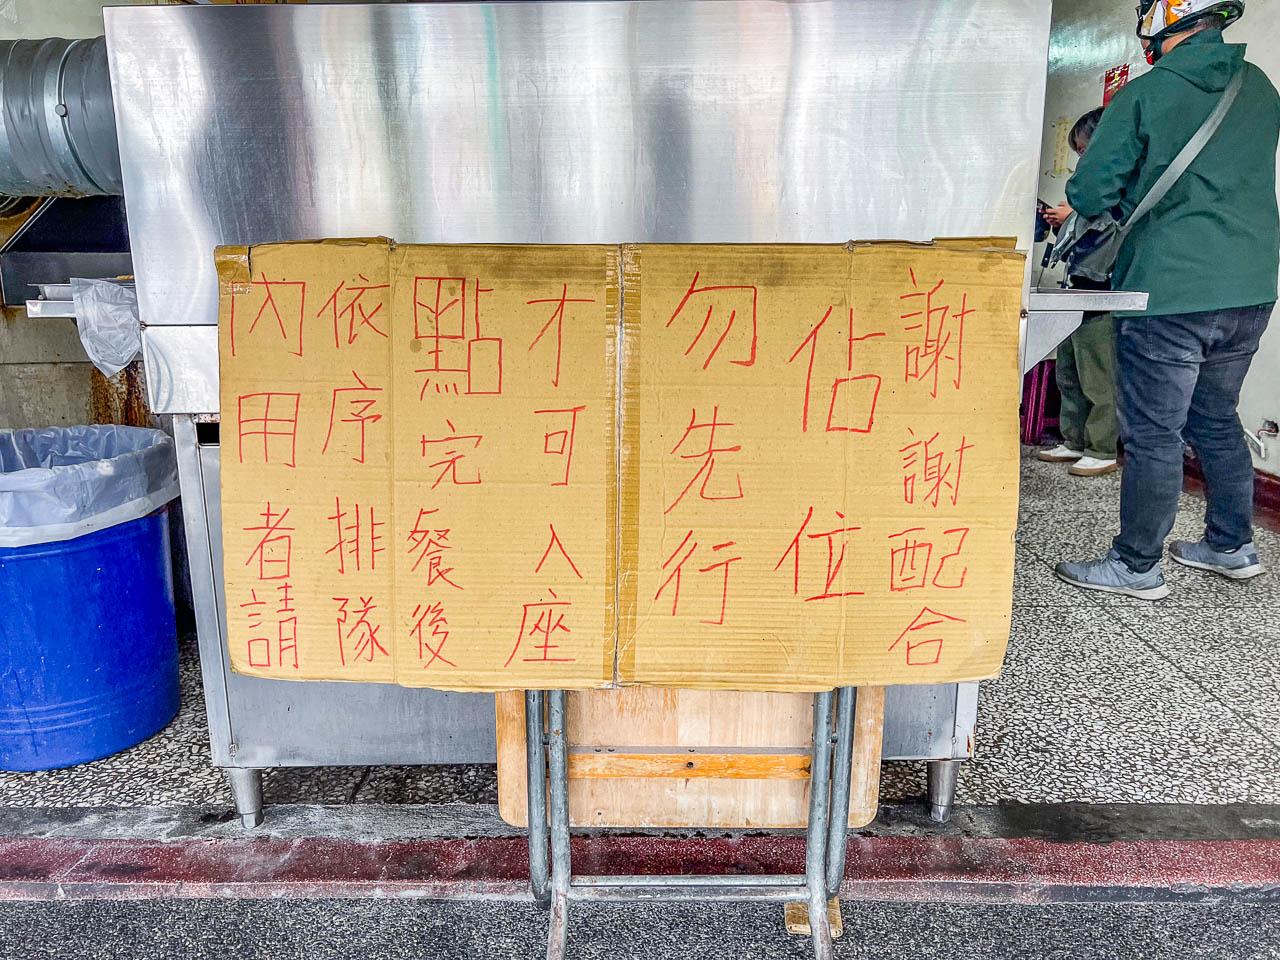 內用者請
依序排隊
點完餐後
才可入座
勿先行
佔位
謝謝配合